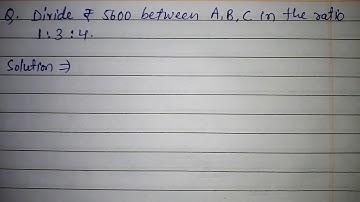 Q. Divide ₹ 5600 between A, B, C in the ratio
1 : 3 : 4.
Solution ⇒